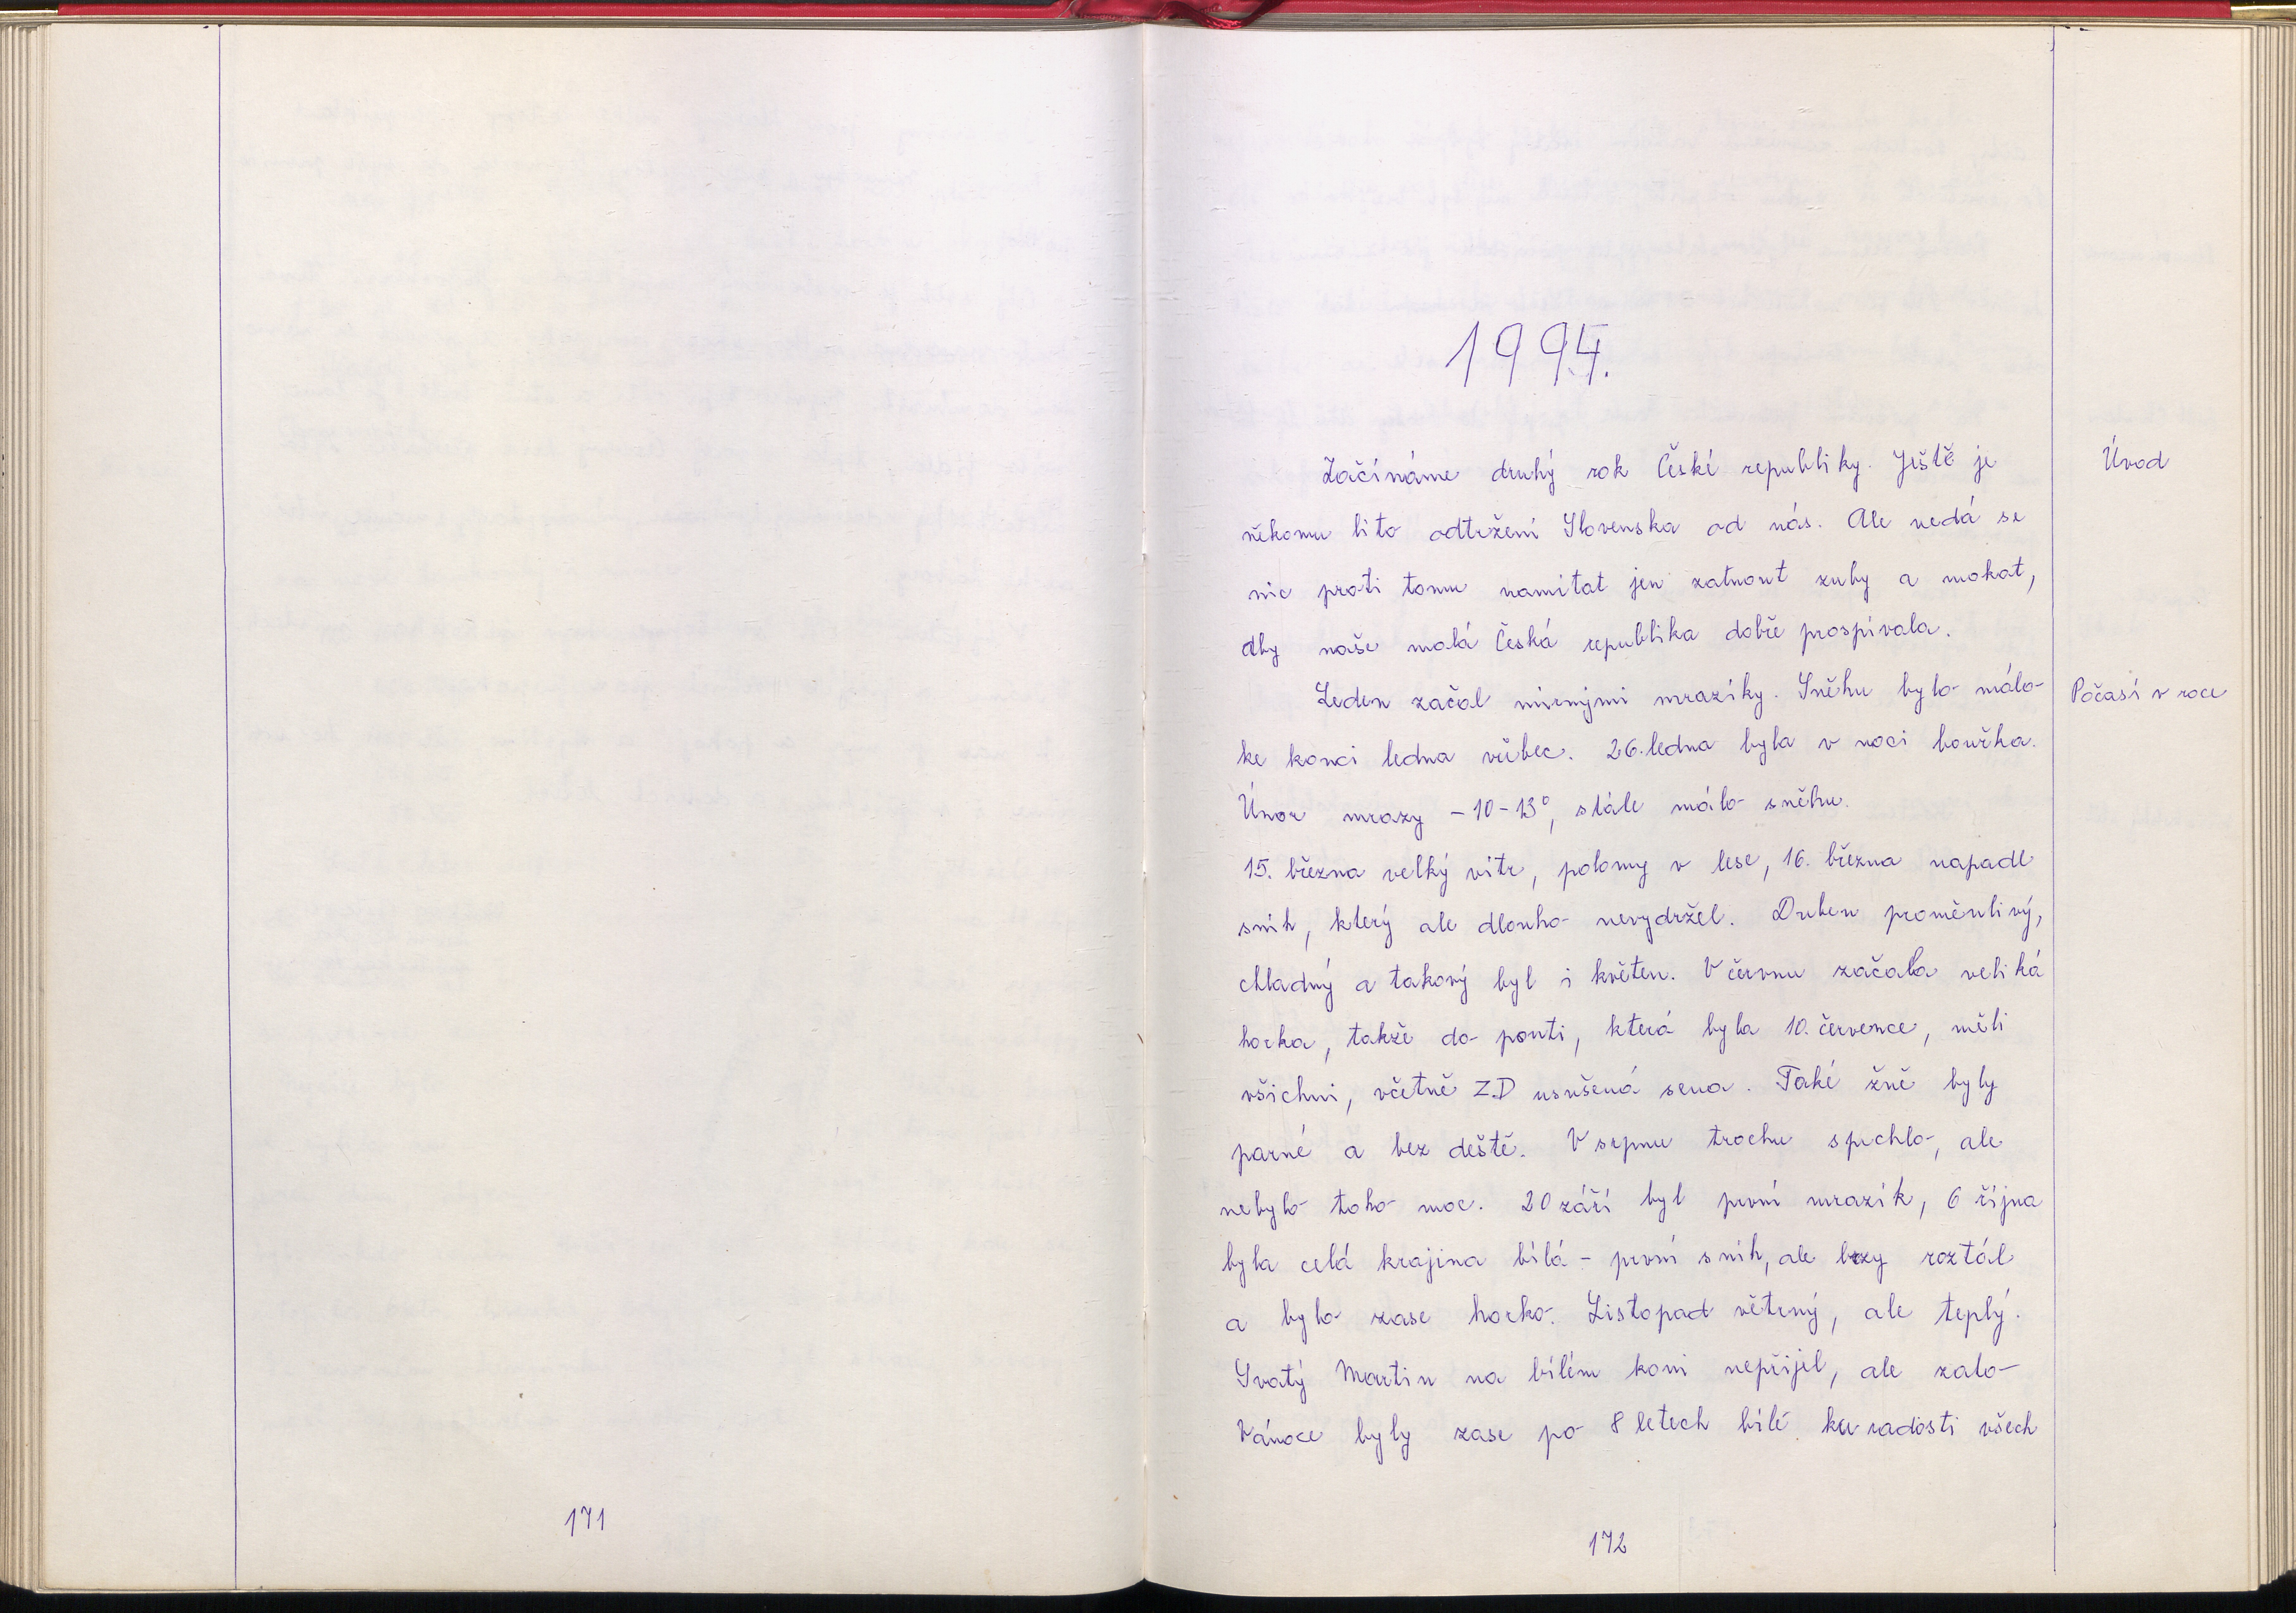 171
1994.
Začínáme druhý rok České republiky. Ještě je
Úvod
někomu líto odtržení Slovenska od nás. Ale nedá se
nic proti tomu namítat jen zatnout zuby a makat,
aby naše malá Česká republika dobře prospívala.
Leden začal mírnými mrazíky. Sněhu bylo málo
Počasí v roce
ke konci ledna vůbec. 26. ledna byla v noci bouřka.
Únor mrazy -10-13°, stále málo sněhu.
15. března velký vítr, polomy v lese, 16. března napadl
sníh, který ale dlouho nevydržel. Duben proměnlivý,
chladný a takový byl i květen. V červnu začala veliká
horka, takže do pouti, která byla 10. července, měli
všichni, včetně Z.D usušená sena. Také žně byly
parné a bez deště. V srpnu trochu sprchlo, ale
nebylo toho moc. 20 září byl první mrazík, 6 října
byla celá krajina bílá - první sníh, ale brzy roztál
a bylo zase horko. Listopad větrný, ale teplý.
Svatý Martin na bílém koni nepřijel, ale zato
Vánoce byly zase po 8 letech bílé ku radosti všech
172